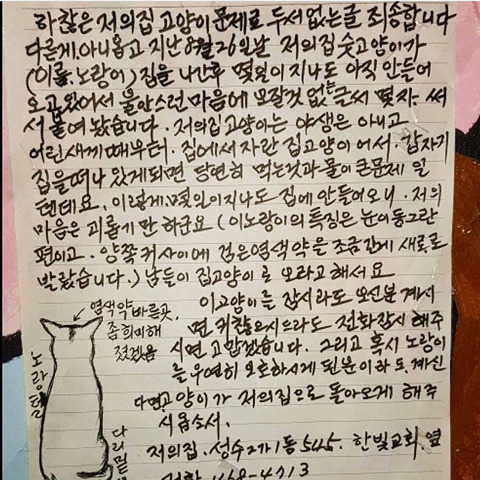 하찮은 저의집 고양이 문제로 두서없는글 죄송합니다
다름게.아니옵고 지난 8월 26일날 저의집 숫고양이가
(이름.노랑이) 집을 나간후 몇일이 지나도 아직 안들어
오고 있어서 불안스런마음에 보잘것 없는글씨 몇자. 써
서 붙여 봤습니다. 저의집고양이는 야생은 아니고
어린새끼때부터. 집에서 자란 집고양이 어서. 갑자기
집을떠나 있게되면 당연히 먹는것과 물이 큰문제 일
텐데요. 이렇게 몇일이지나도 집에 안들어오니. 저의
마음은 괴롭기만 하군요 (이노랑이의 특징은 눈이동그란
편이고. 양쪽귀사이에 검은염색약을 조금길게 세로로
발랐습니다.) 남들이 집고양이로 오라고 해서요
염색약바르곳. 이고양이를 잠시라도 보신분 계시
좀 희미해 면 귀찮으시드라도 전화잠시 해주
졌겠음 시면 고맙겠습니다. 그리고 혹시 노랑이
를 우연히 보호하시게 된분이라도. 계신
노랑털
다면 고양이가 저의집으로 돌아오게 해주
시옵소서.
다리밑
저의집. 성수2가1동 545. 한빛교회. 옆
468-4713